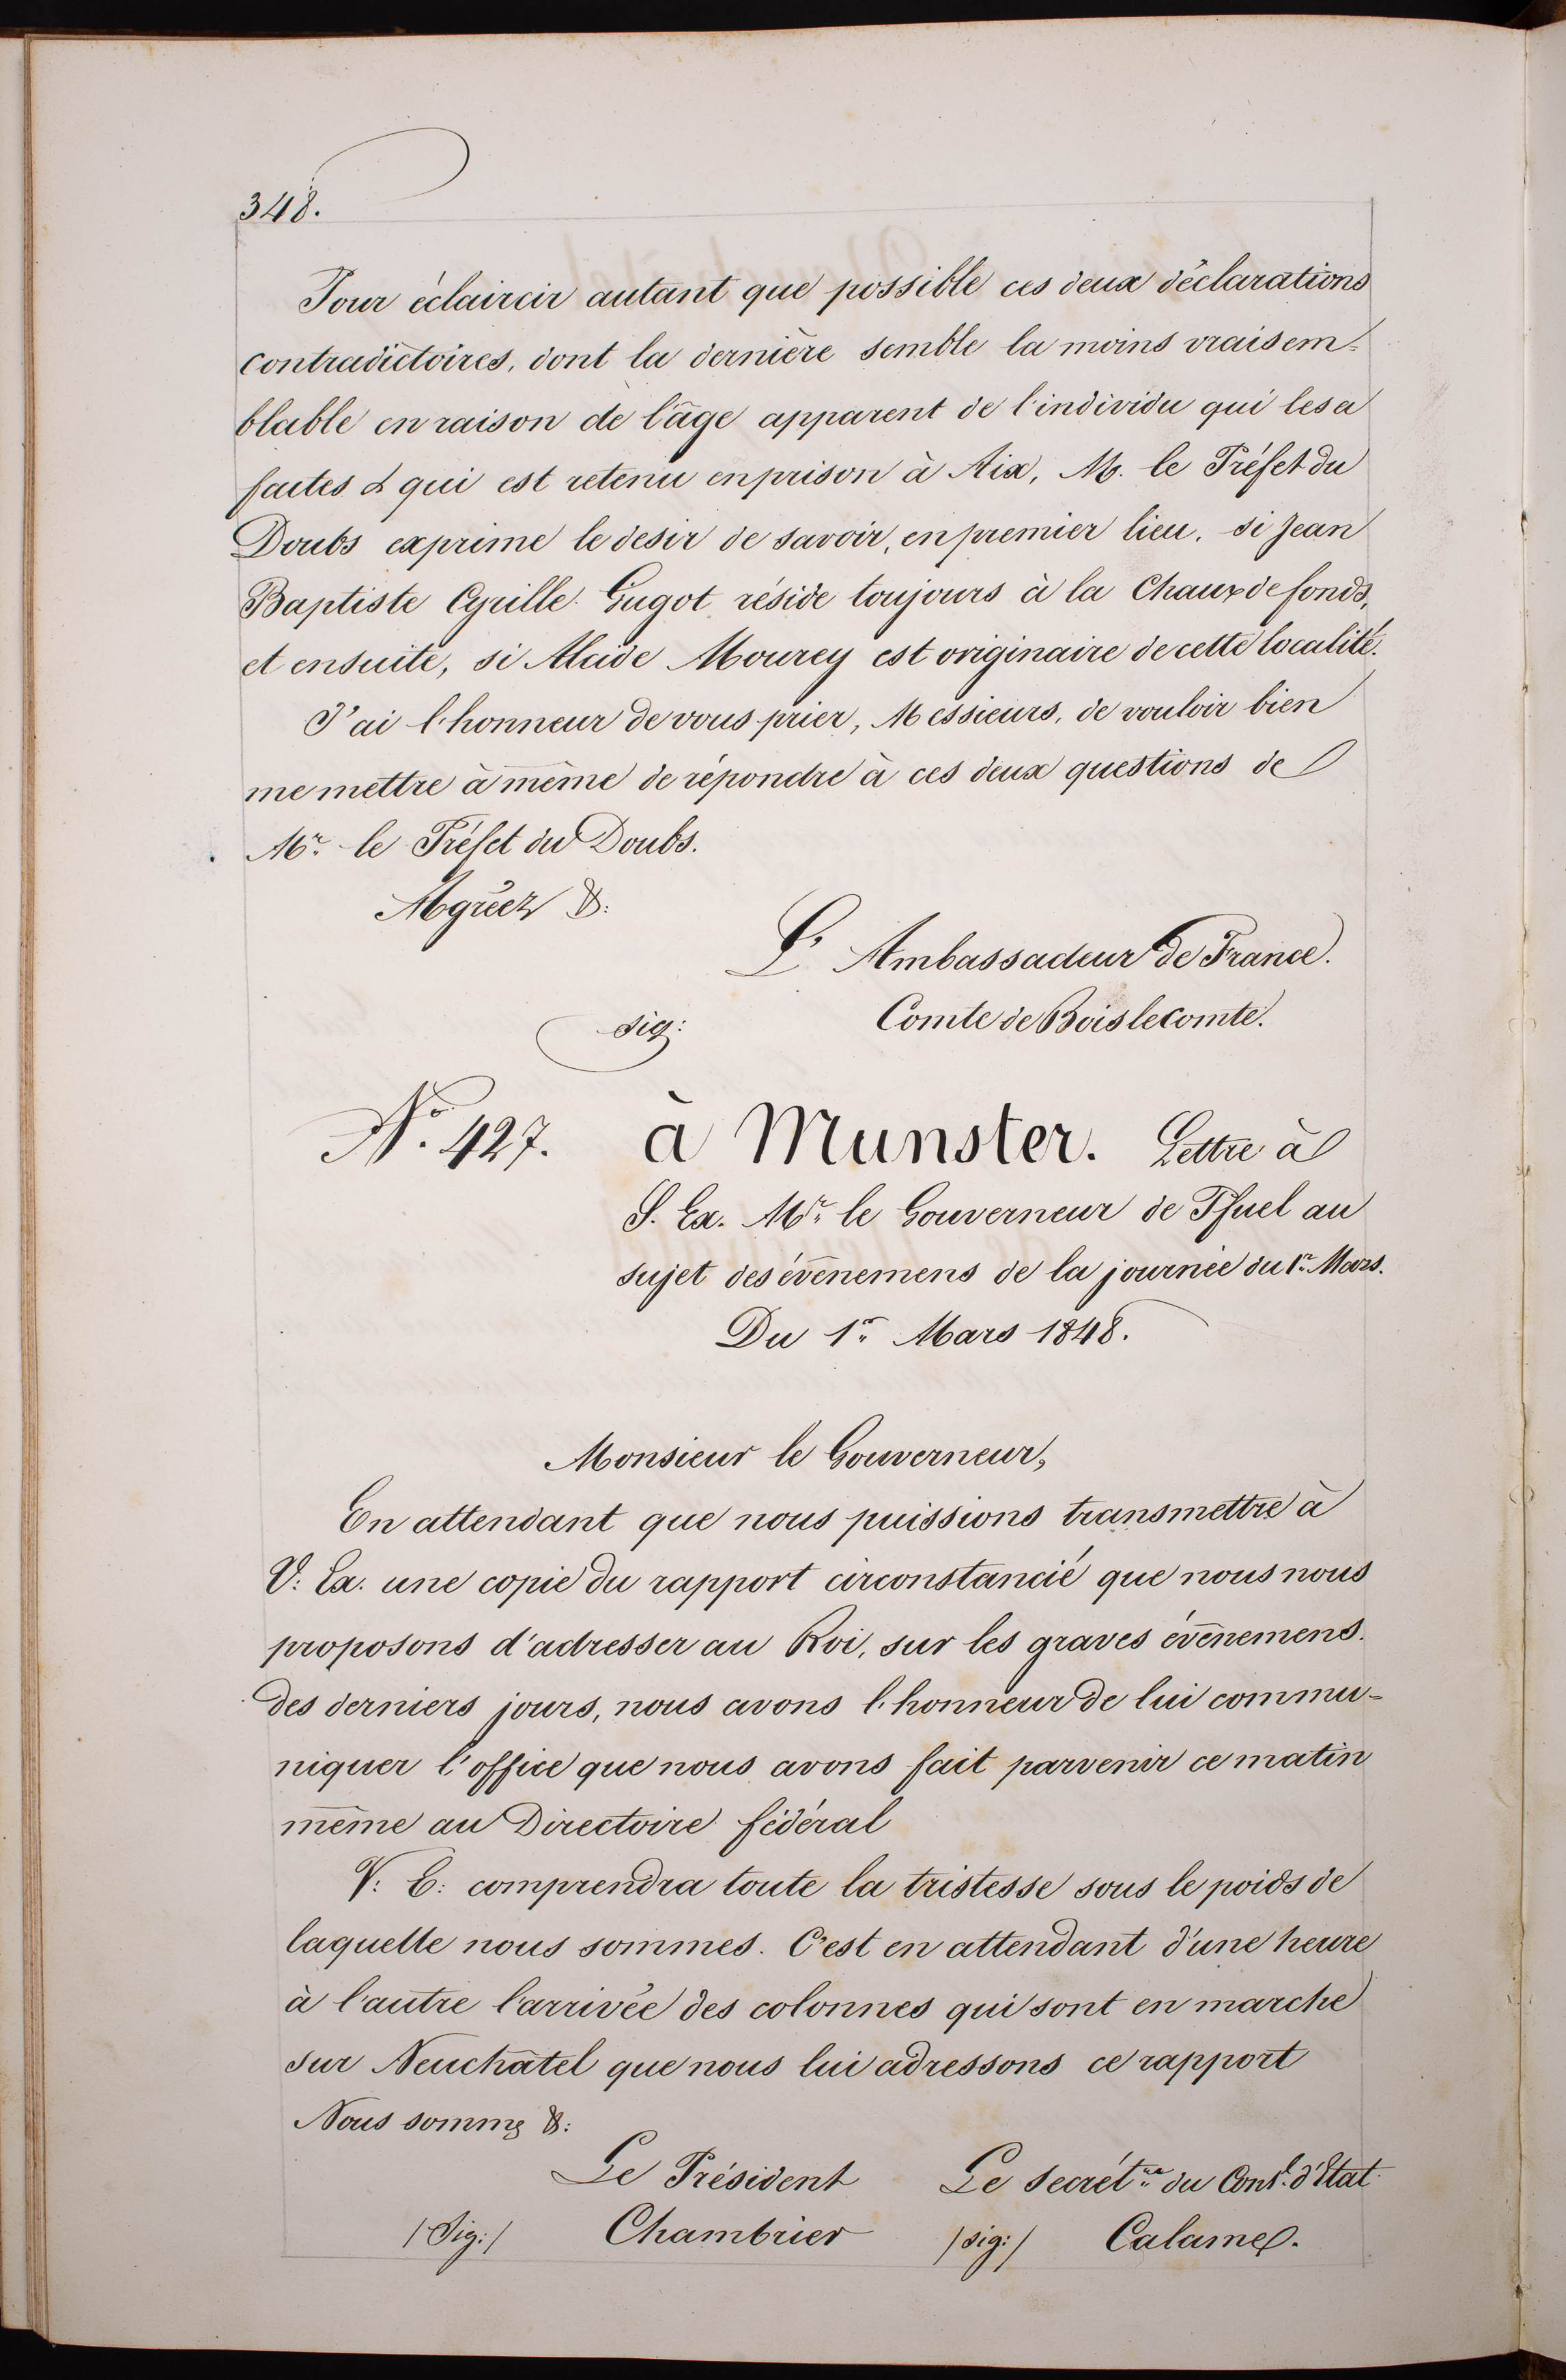 348.
Pour éclaircir autant que possible ces deux déclarations
contradictoires, dont la dernière semble la moins vraisem-
blable en raison de l'âge apparent de l'individu qui les a
faites & qui est retenu en prison à Aix, M. le Préfet du
Doubs exprime le desir de savoir, en premier lieu, si Jean
Baptiste Cyrille Gugot réside toujours à la Chaux de fonds,
et ensuite, si Alcide Mourey est originaire de cette localité.
J'ai l'honneur de vous prier, Messieurs, de vouloir bien
me mettre à même de répondre à ces deux questions de
Mr. le Préfet du Doubs.
Agréez &:
L'Ambassadeur de France.
sig: Comte de Bois le Comte.
No. 427. à Munster. Lettre à
S. Ex. Mr. le Gouverneur de Pfuel au
sujet des événemens de la journée du 1r. Mars.
Du 1r. Mars 1848.
Monsieur le Gouverneur,
En attendant que nous puissions transmettre à
V: Ex. une copie du rapport circonstancié que nous nous
proposons d'adresser au Roi, sur les graves événemens.
des derniers jours, nous avons l'honneur de lui commu-
niquer l'office que nous avons fait parvenir ce matin
même au Directoire fédéral
V: E: comprendra toute la tristesse sous le poids de
laquelle nous sommes. C'est en attendant d'une heure
à l'autre l'arrivée des colonnes qui sont en marche
sur Neuchâtel que nous lui adressons ce rapport
Nous sommes &:
Le Président Le Secrét.re du Cons.l d'Etat
/Sig:/ Chambrier /sig:/ Calame.